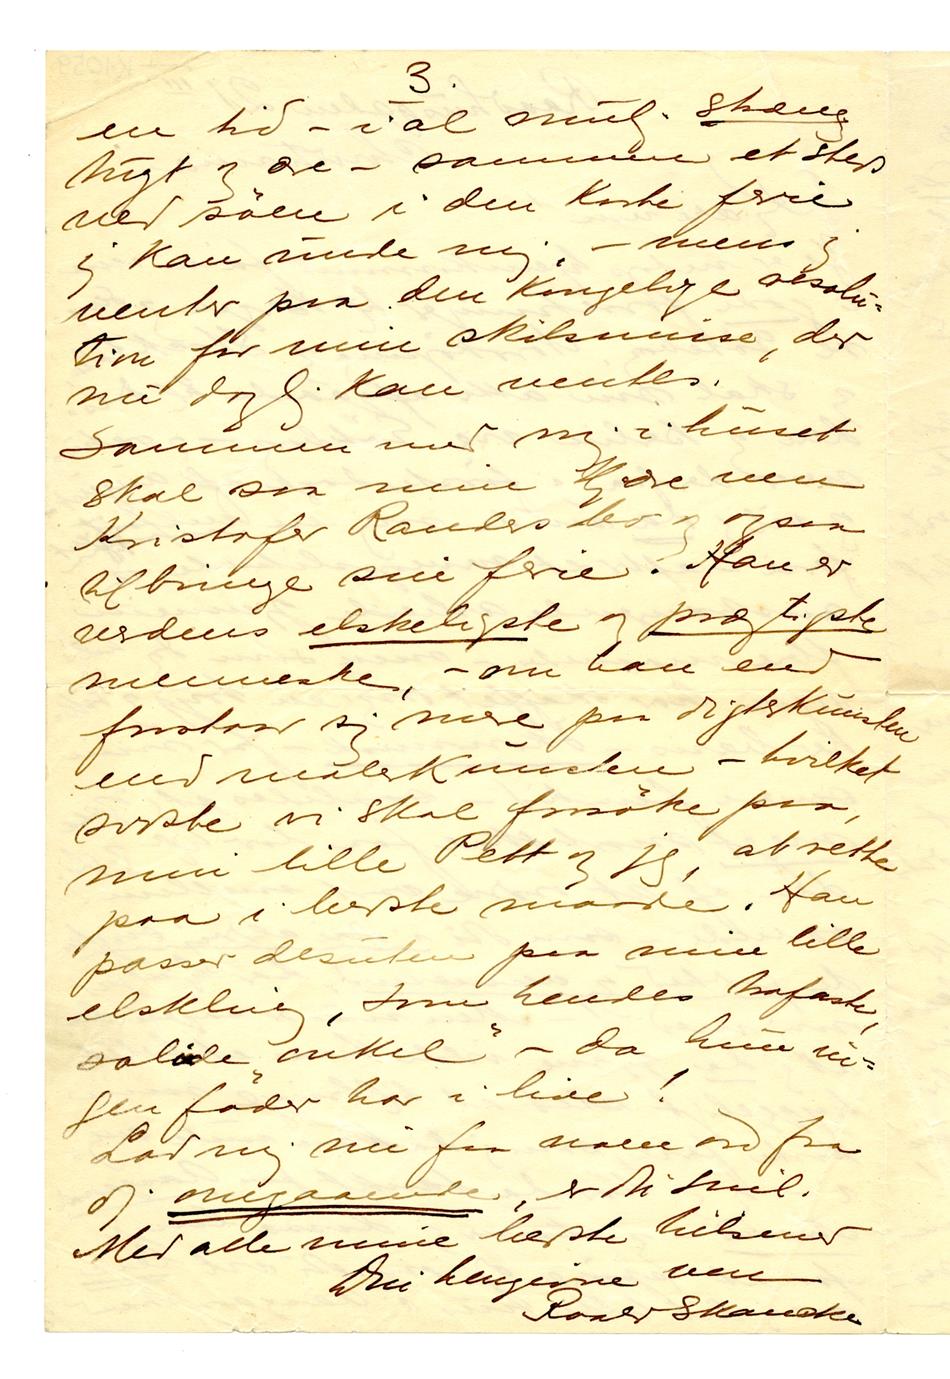 3.
en tid – i al mulig. skæng
hygt og ære – sammen et steds
ved söen i den korte ferie
jeg kan unde mig, – mens jeg
venter paa den kongelige resolu-
tion for min skilsmisse, der
nu daglig kan ventes.
Sammen med mig i huset
skal saa min kjære ven
Kristofer Randers bo og ogsaa
tilbringe sin ferie. Han er
verdens elskeligste og prægtigste
menneske, – om han end
forstaar sig mere paa digterkunsten
end malerkunsten – hvilket
sidste vi skal forsöke paa,
min lille Pett og jeg, at rette
paa i bedste maade. Han
passer desuten paa min lille
elskling, som hendes trofaste,
solide "onkel" – da hun in-
gen fader har i live!
Lad mig nu faa noen ord fra
dig omgaaende, er du snil.
Med alle mine bedste hilsener
Din hengivne ven
Roald Skancke